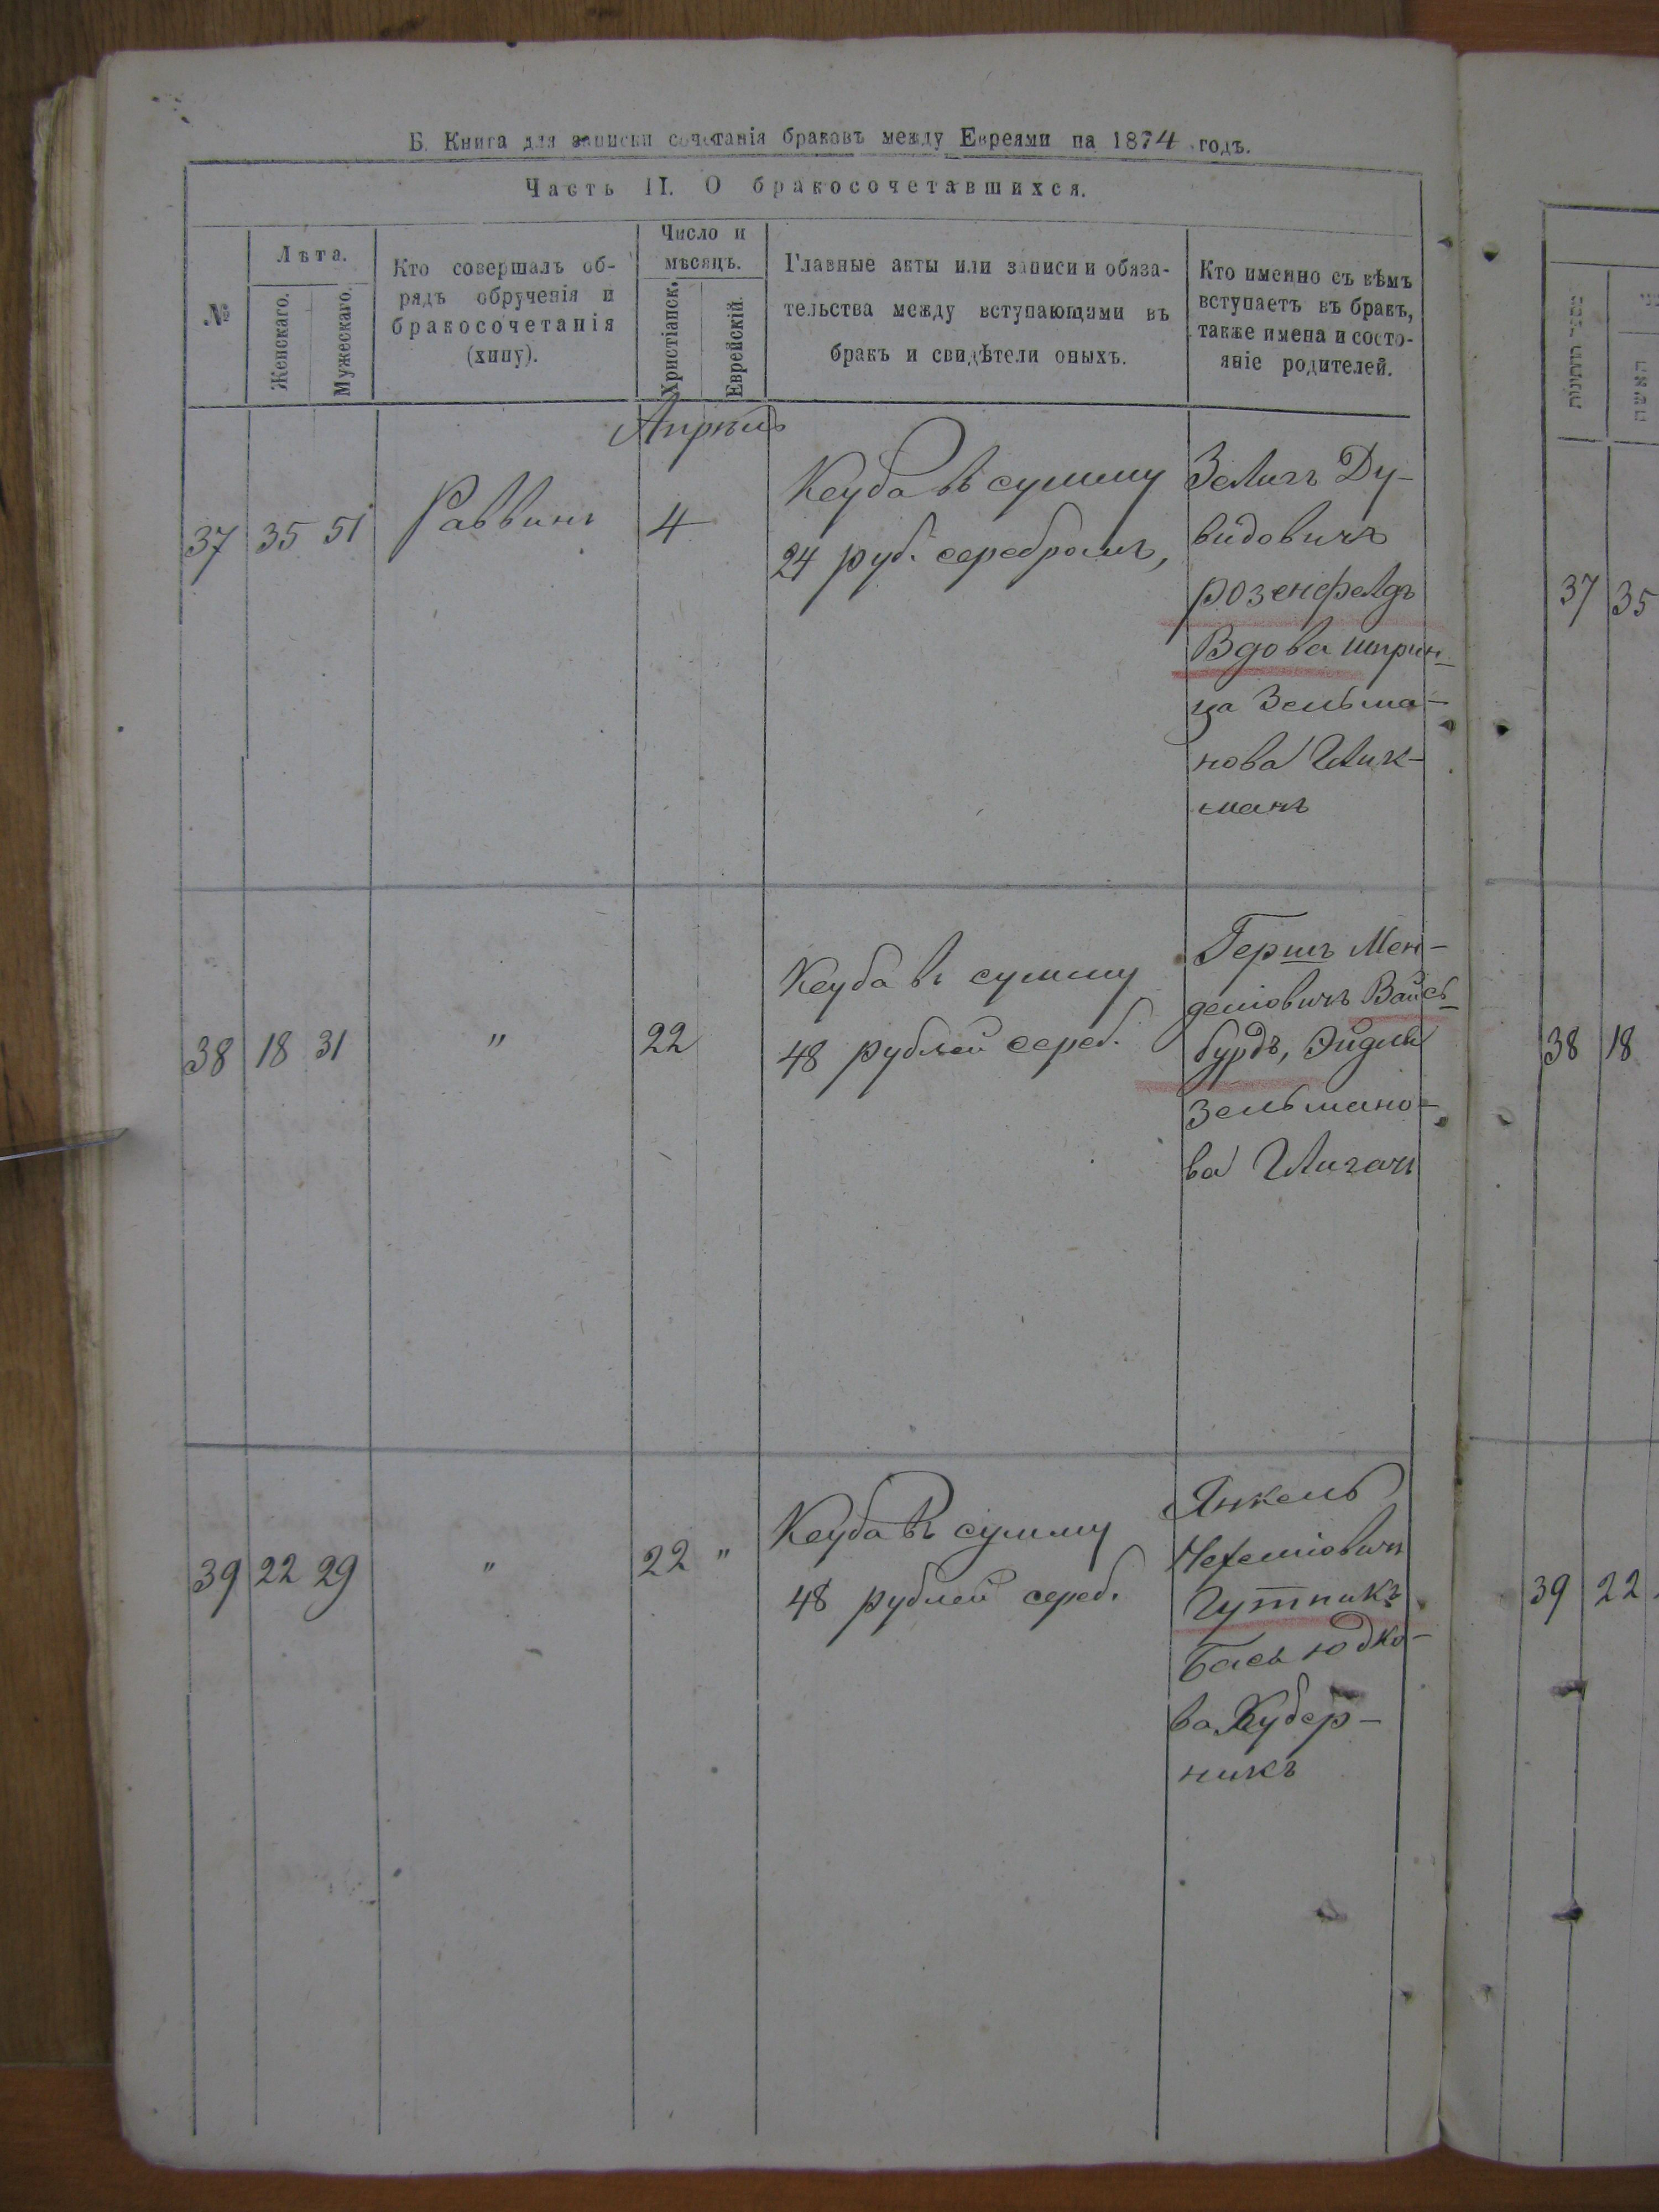 Б. Книга для записки сочетанія браковъ между Евреями на 1874 годъ.
Часть II. О бракосочетавшихся.
№
Лѣта.
Женскаго.
Мужескаго.
Кто совершалъ об-
рядъ обрученія и
бракосочетанія
(хипу).
Число и
мѣсяцъ.
Христіанск.
Еврейскій.
Главные акты или записи и обяза-
тельства между вступающими въ
бракъ и свидѣтели оныхъ.
Кто именно съ кѣмъ
вступаетъ въ бракъ,
также имена и состо-
яніе родителей.
Апрѣль
37 35 51 Раввинъ 4
Кеуба въ сумму
24 руб. серебромъ,
Зелигъ Ду-
видовичъ
розенфелдъ
Вдова шприн-
ца Зельма-
нова Глик-
манъ
38 18 31 " 22
Кеуба въ сумму
48 рублей сереб.
Гершъ Мен-
делiовичъ Вайсъ-
бурдъ, Эйдля
Зельмано-
ва
39 22 29 " 22 "
Кеуба въ сумму
48 рублей сереб.
Янкель
Гутникъ
Бася юдко-
ва Куберъ-
никъ
37 35
38 18
39 22
האשה